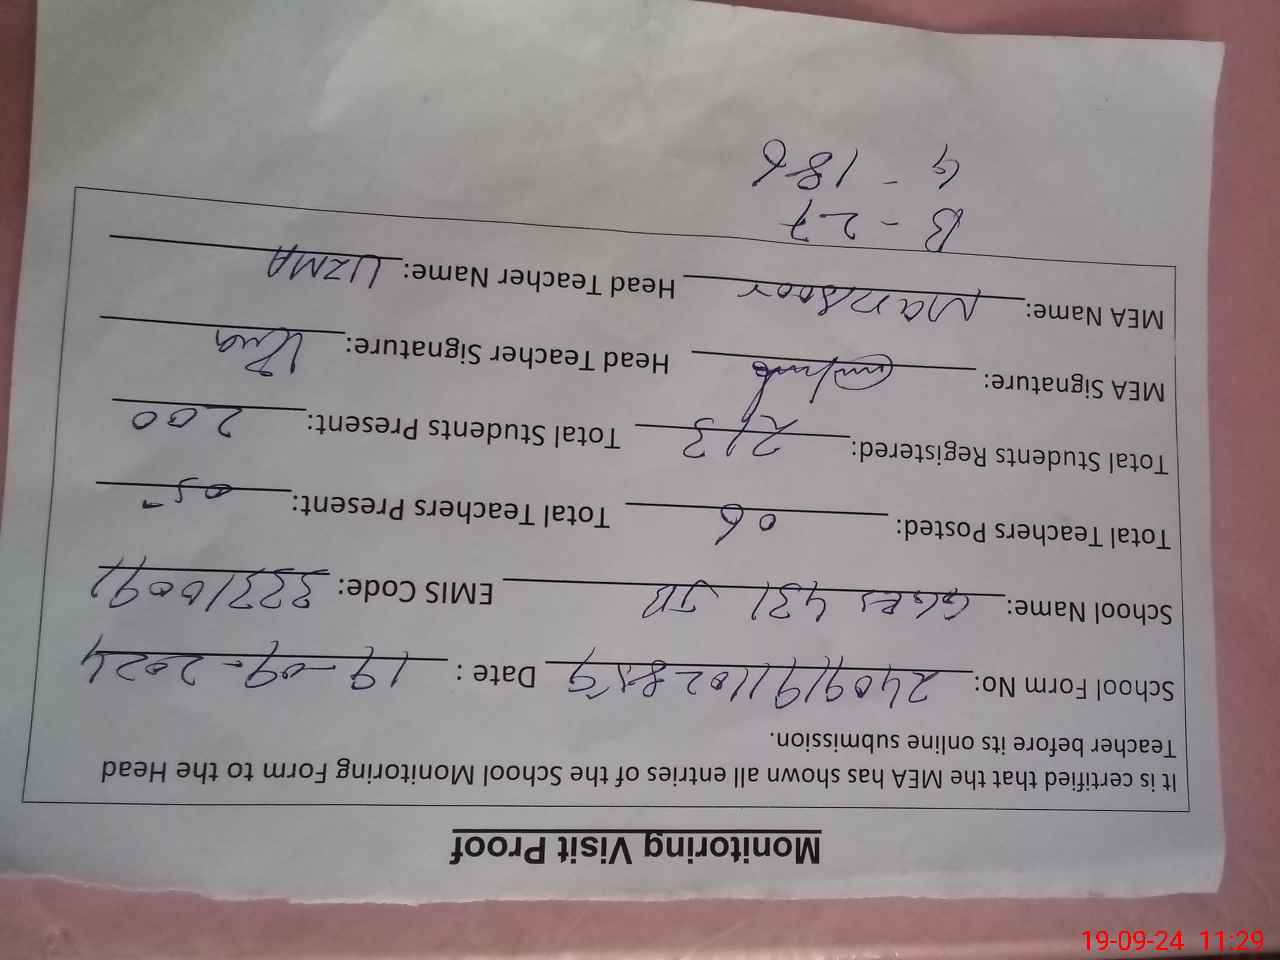 Monitoring Visit Proof
It is certified that the MEA has shown all entries of the School Monitoring Form to the Head
Teacher before its online submission.
School Form No: 2409191102859 Date : 19-09-2024
School Name: GGES 431 JB EMIS Code: 33310091
Total Teachers Posted: 06 Total Teachers Present: 05
Total Students Registered: 213 Total Students Present: 200
MEA Signature: Head Teacher Signature: Uzma
MEA Name: Mansoor Head Teacher Name: UZMA
B - 27
G - 186
19-09-24 11:29